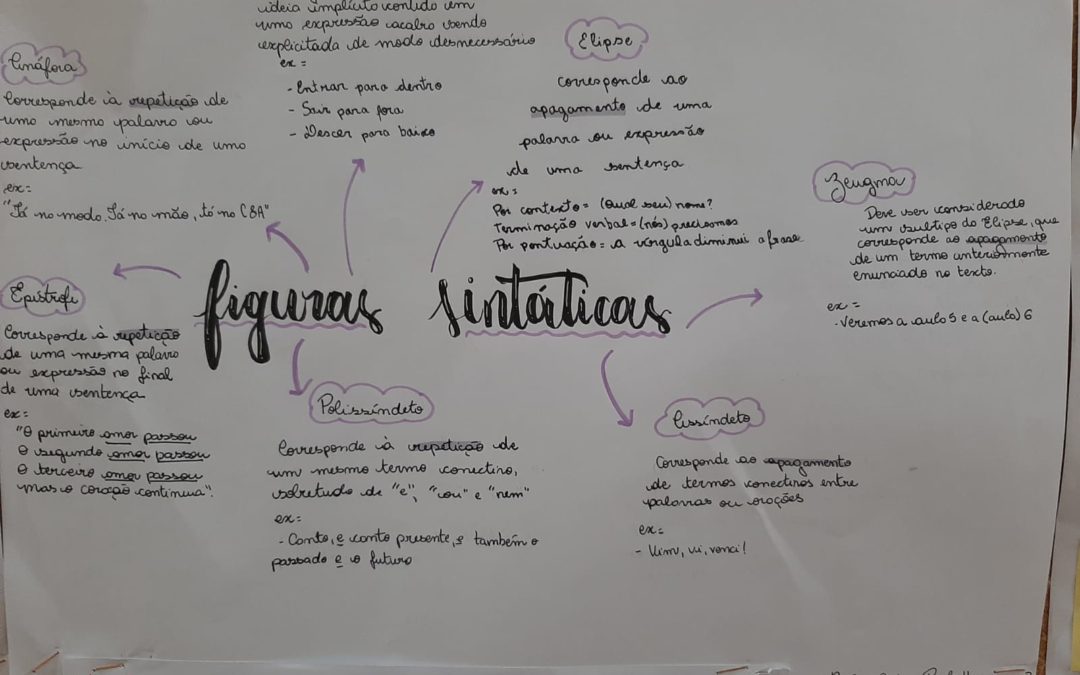 ideia implícita contida em
uma expressão acaba sendo
explicitada de modo desnecessário
ex=
- Entrar para dentro
- Sair para fora
- Descer para baixo
Elipse
corresponde ao
apagamento de uma
palavra ou expressão
de uma sentença
ex=
Por contexto = (Qual seu) nome?
Terminação verbal = (nós) precisamos
Por pontuação = a vírgula diminui a frase
Anáfora
Corresponde à repetição de
uma mesma palavra ou
expressão no início de uma
sentença
ex=
"Tá na moda, Tá na mão, tá na C&A"
Zeugma
Deve ser considerado
um subtipo do Elipse, que
corresponde ao apagamento
de um termo anteriormente
enunciado no texto.
ex=
- Veremos a aula 5 e a (aula) 6
figuras sintáticas
Epístrofe
Corresponde à repetição
de uma mesma palavra
ou expressão no final
de uma sentença
ex=
"O primeiro amor passou
O segundo amor passou
O terceiro amor passou
mas o coração continua".
Polissíndeto
Corresponde à repetição de
um mesmo termo conectivo,
sobretudo de "e", "ou" e "nem"
ex=
- Canto, e canto presente, e também o
passado e o futuro
Assíndeto
Corresponde ao apagamento
de termos conectivos entre
palavras ou orações
ex=
- Vim, vi, venci!